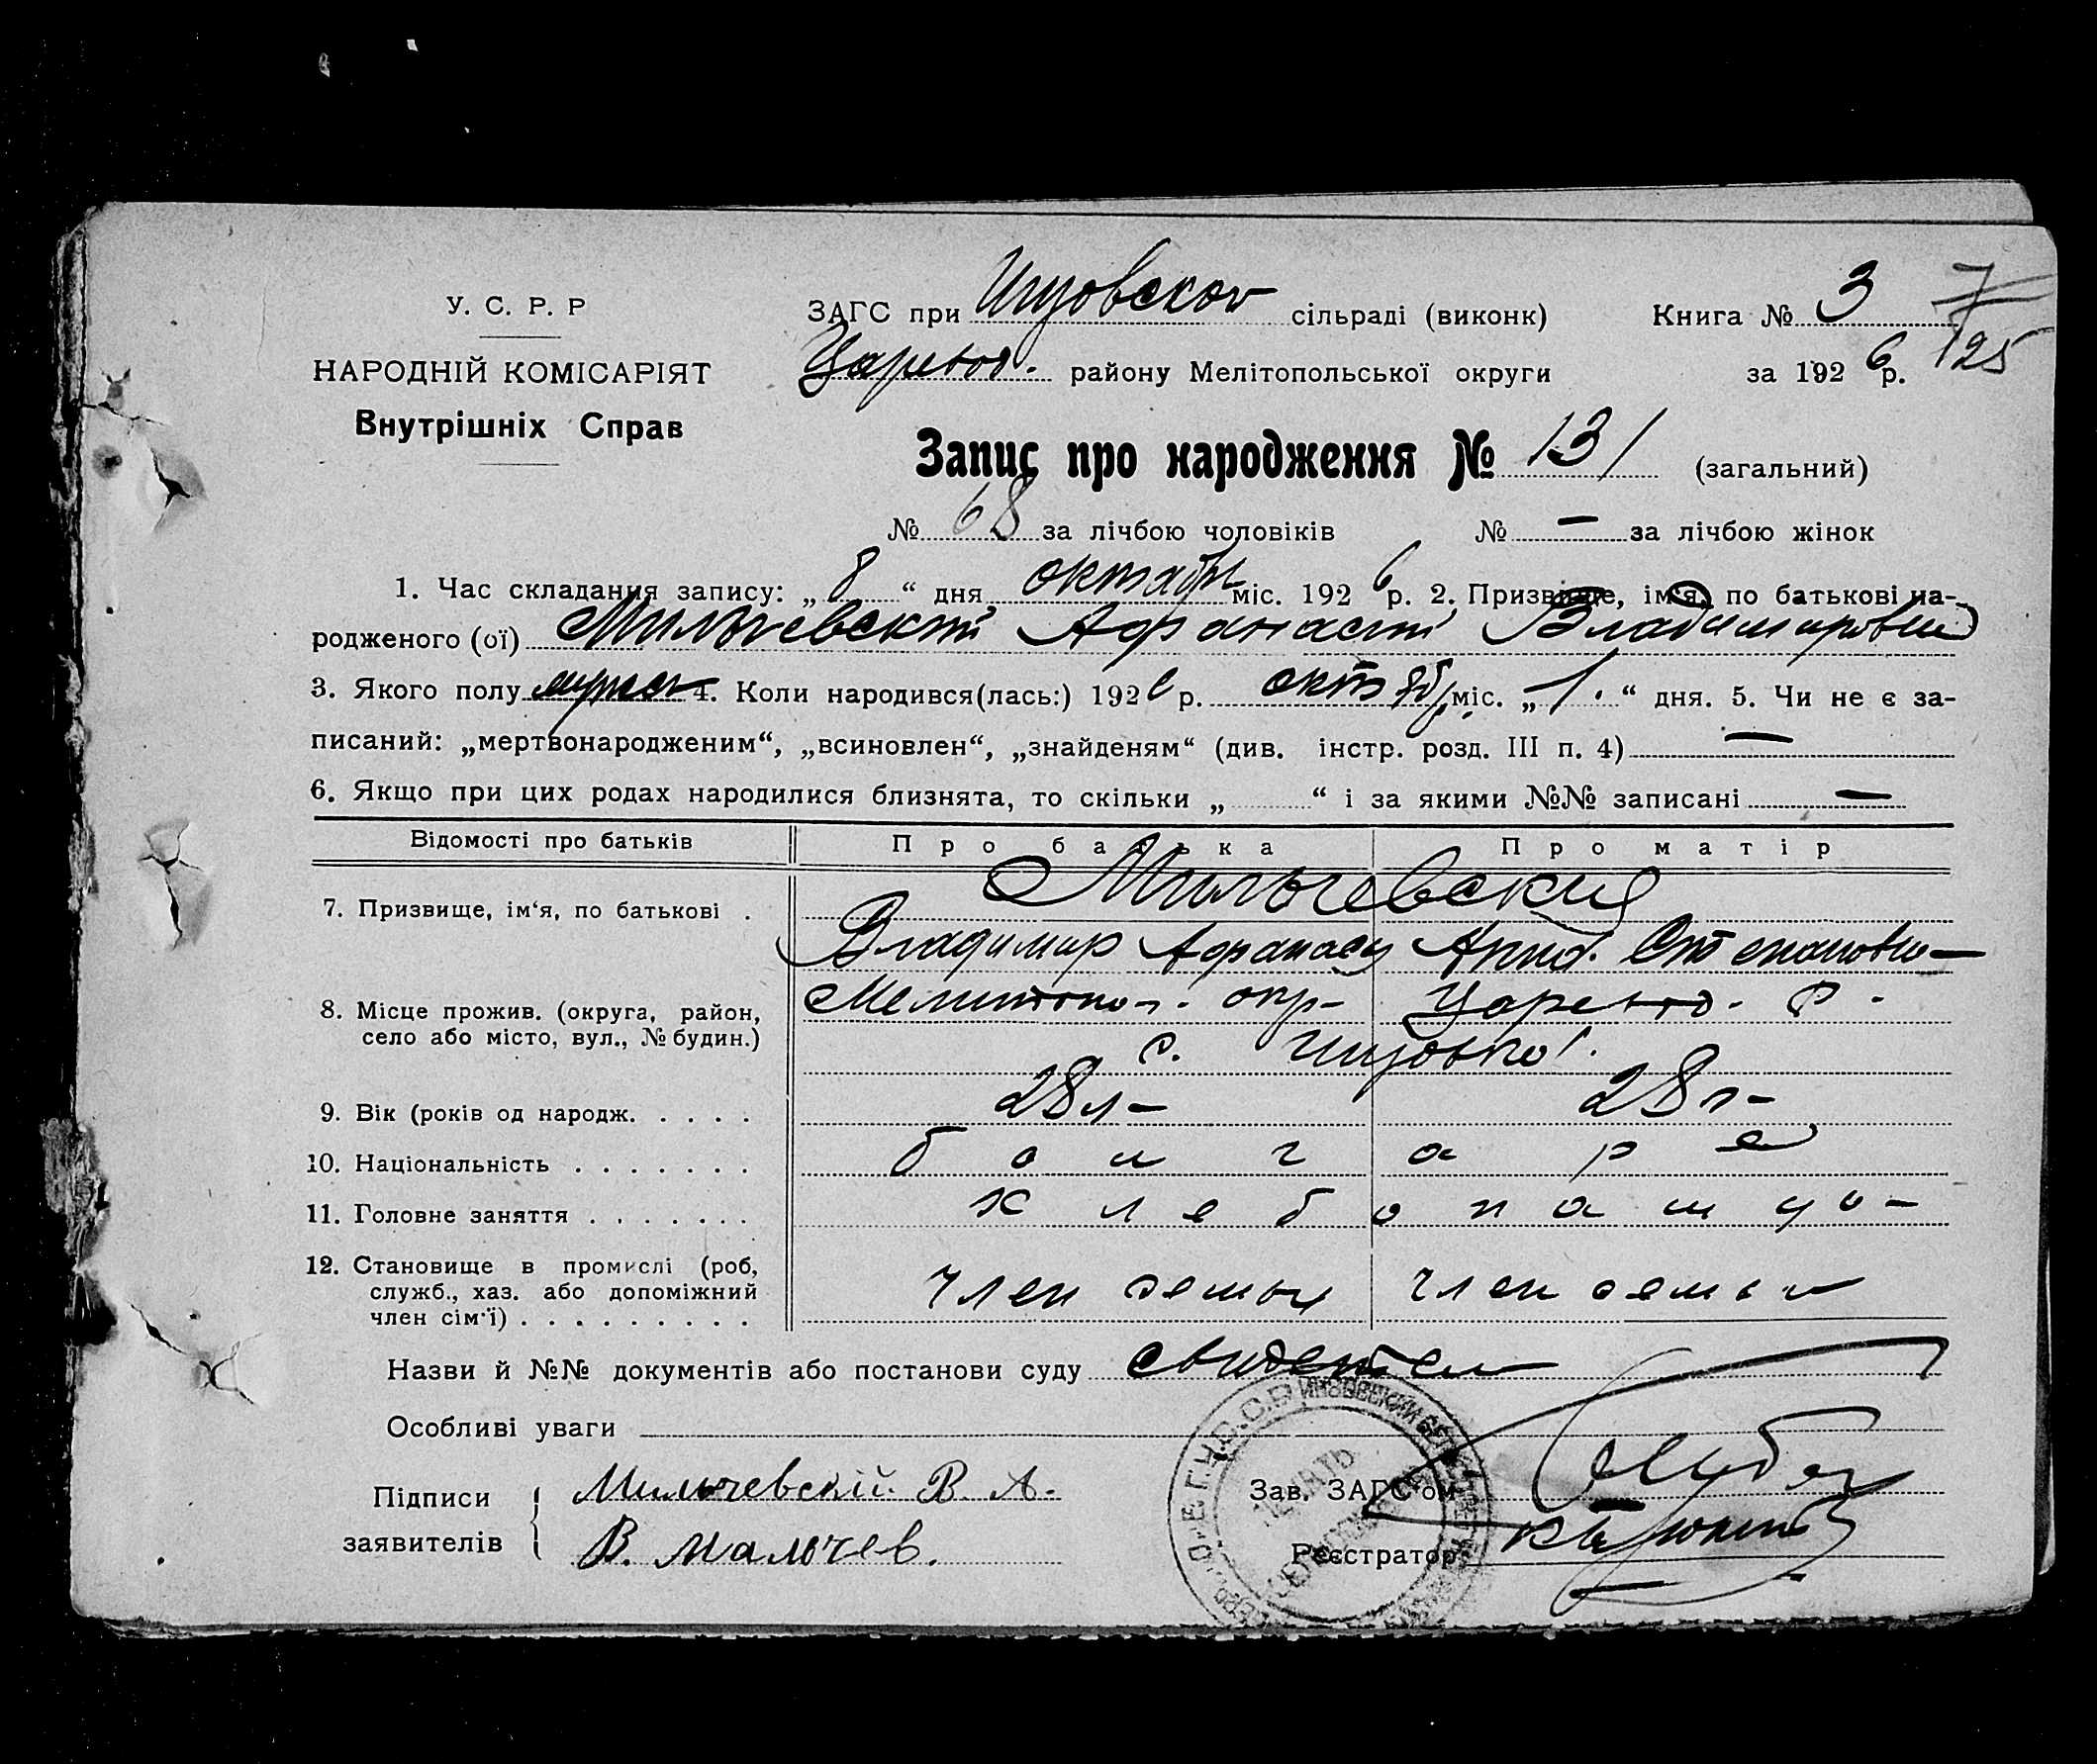 У. С. Р. Р
НАРОДНІЙ КОМІСАРІЯТ
Внутрішніх Справ
ЗАГС при сільраді (виконк) Книга № 3 7
району Мелітопольської округи за 192 6 р. 125
Запис про народження № 131 (загальний)
№ 68 за лічбою чоловіків № — за лічбою жінок
1. Час складання запису: „ 8 “ дня октября міс. 192 6 р. 2. Призвище, ім‘я, по батькові на-
родженого (ої) Мильчевский Афанасий Владимирович
3. Якого полу мужск 4. Коли народився(лась:) 192 6 р. октяб міс. „ 1. “ дня. 5. Чи не є за-
писаний: „мертвонародженим“, „всиновлен“, „знайденям“ (див. інстр. розд. III п. 4) —
6. Якщо при цих родах народилися близнята, то скільки „ “ і за якими №№ записані —
Відомості про батьків Про батька Про матір
7. Призвище, ім‘я, по батькові . Мильчевские
Владимир Афанась Анна Степановна
8. Місце прожив. (округа, район, Мелитоп. окр- р-
село або місто, вул., № будин.) с.
9. Вік (років од народж. . . . . 28 л- 28 л-
10. Національність . . . . . . . болгаре
11. Головне заняття . . . . . . . хлебопашцы-
12. Становище в промислі (роб, член семьи член семьи
служб., хаз. або допоміжний
член сім‘ї) . . . . . . . . .
Назви й №№ документів або постанови суду
Особливі уваги
Підписи Мильчевскій В. А. Зав. ЗАГС‘ом
заявителів В. Мальчев. Реєстратор